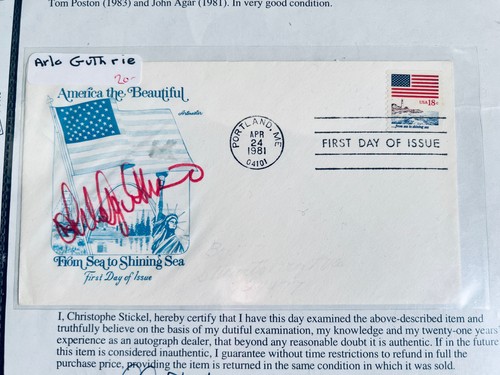 Tom Poston (1983) and John Agar (1981). In very good condition.
Arlo Guthrie
20-
America the Beautiful
From Sea to Shining Sea
First Day of Issue
PORTLAND, ME
APR
24
1981
04101
USA 18c
...from sea to shining sea
FIRST DAY OF ISSUE
I, Christophe Stickel, hereby certify that I have this day examined the above-described item and
truthfully believe on the basis of my dutiful examination, my knowledge and my twenty-one years'
experience as an autograph dealer, that beyond any reasonable doubt it is authentic. If in the future
this item is considered inauthentic, I guarantee without time restrictions to refund in full the
purchase price, providing the item is returned in the same condition in which it was sold.